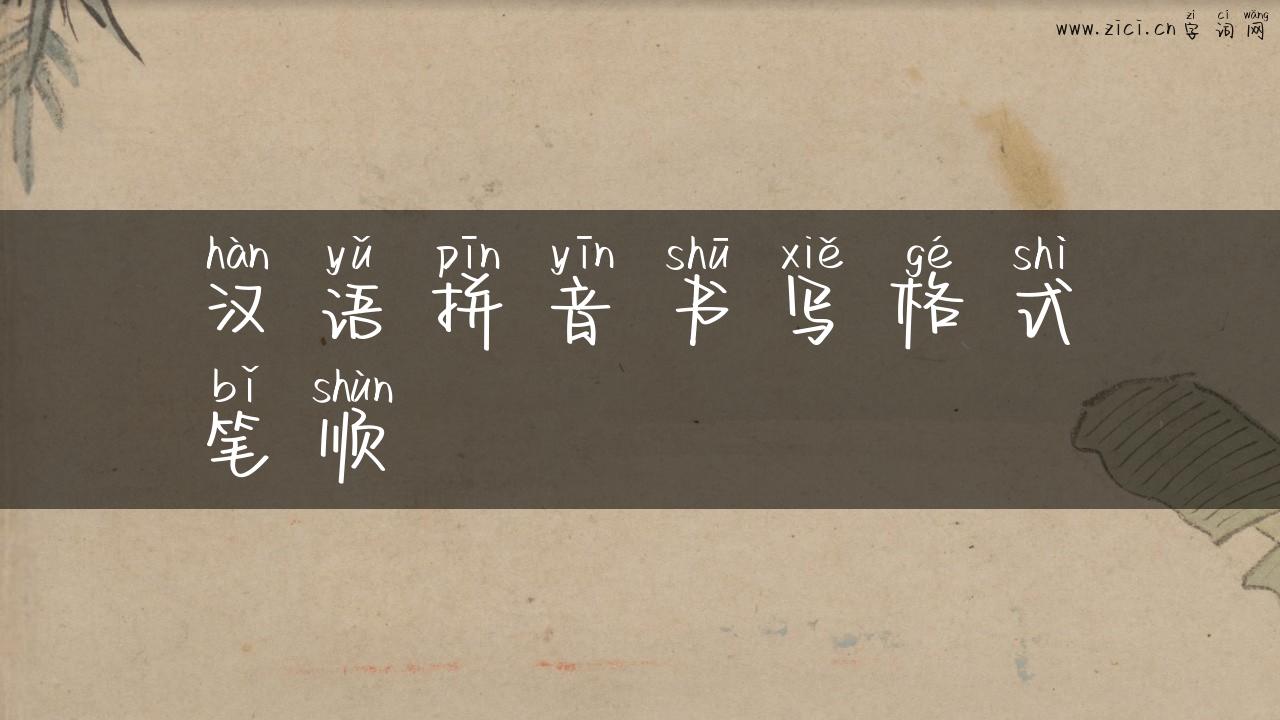 zì cí wǎng
www.zici.cn 字 词 网
hàn yǔ pīn yīn shū xiě gé shì
汉 语 拼 音 书 写 格 式
bǐ shùn
笔 顺